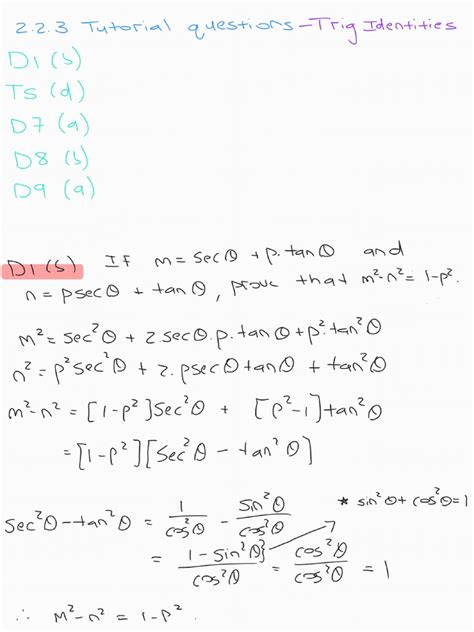 2.2.3 Tutorial questions - Trig Identities
D1 (b)
T5 (d)
D7 (a)
D8 (b)
D9 (a)
D1 (b) If m = secθ + p.tanθ and
n = psecθ + tanθ, prove that m²-n² = 1-p².
m² = sec²θ + 2.secθ.p.tanθ + p².tan²θ
n² = p²sec²θ + 2.psecθtanθ + tan²θ
m²-n² = [1-p²]sec²θ + [p²-1]tan²θ
= [1-p²][sec²θ - tan²θ]
sec²θ - tan²θ = 1/cos²θ - sin²θ/cos²θ * sin²θ + cos²θ = 1
= 1 - sin²θ}/cos²θ = cos²θ/cos²θ = 1
∴ m² - n² = 1 - p².